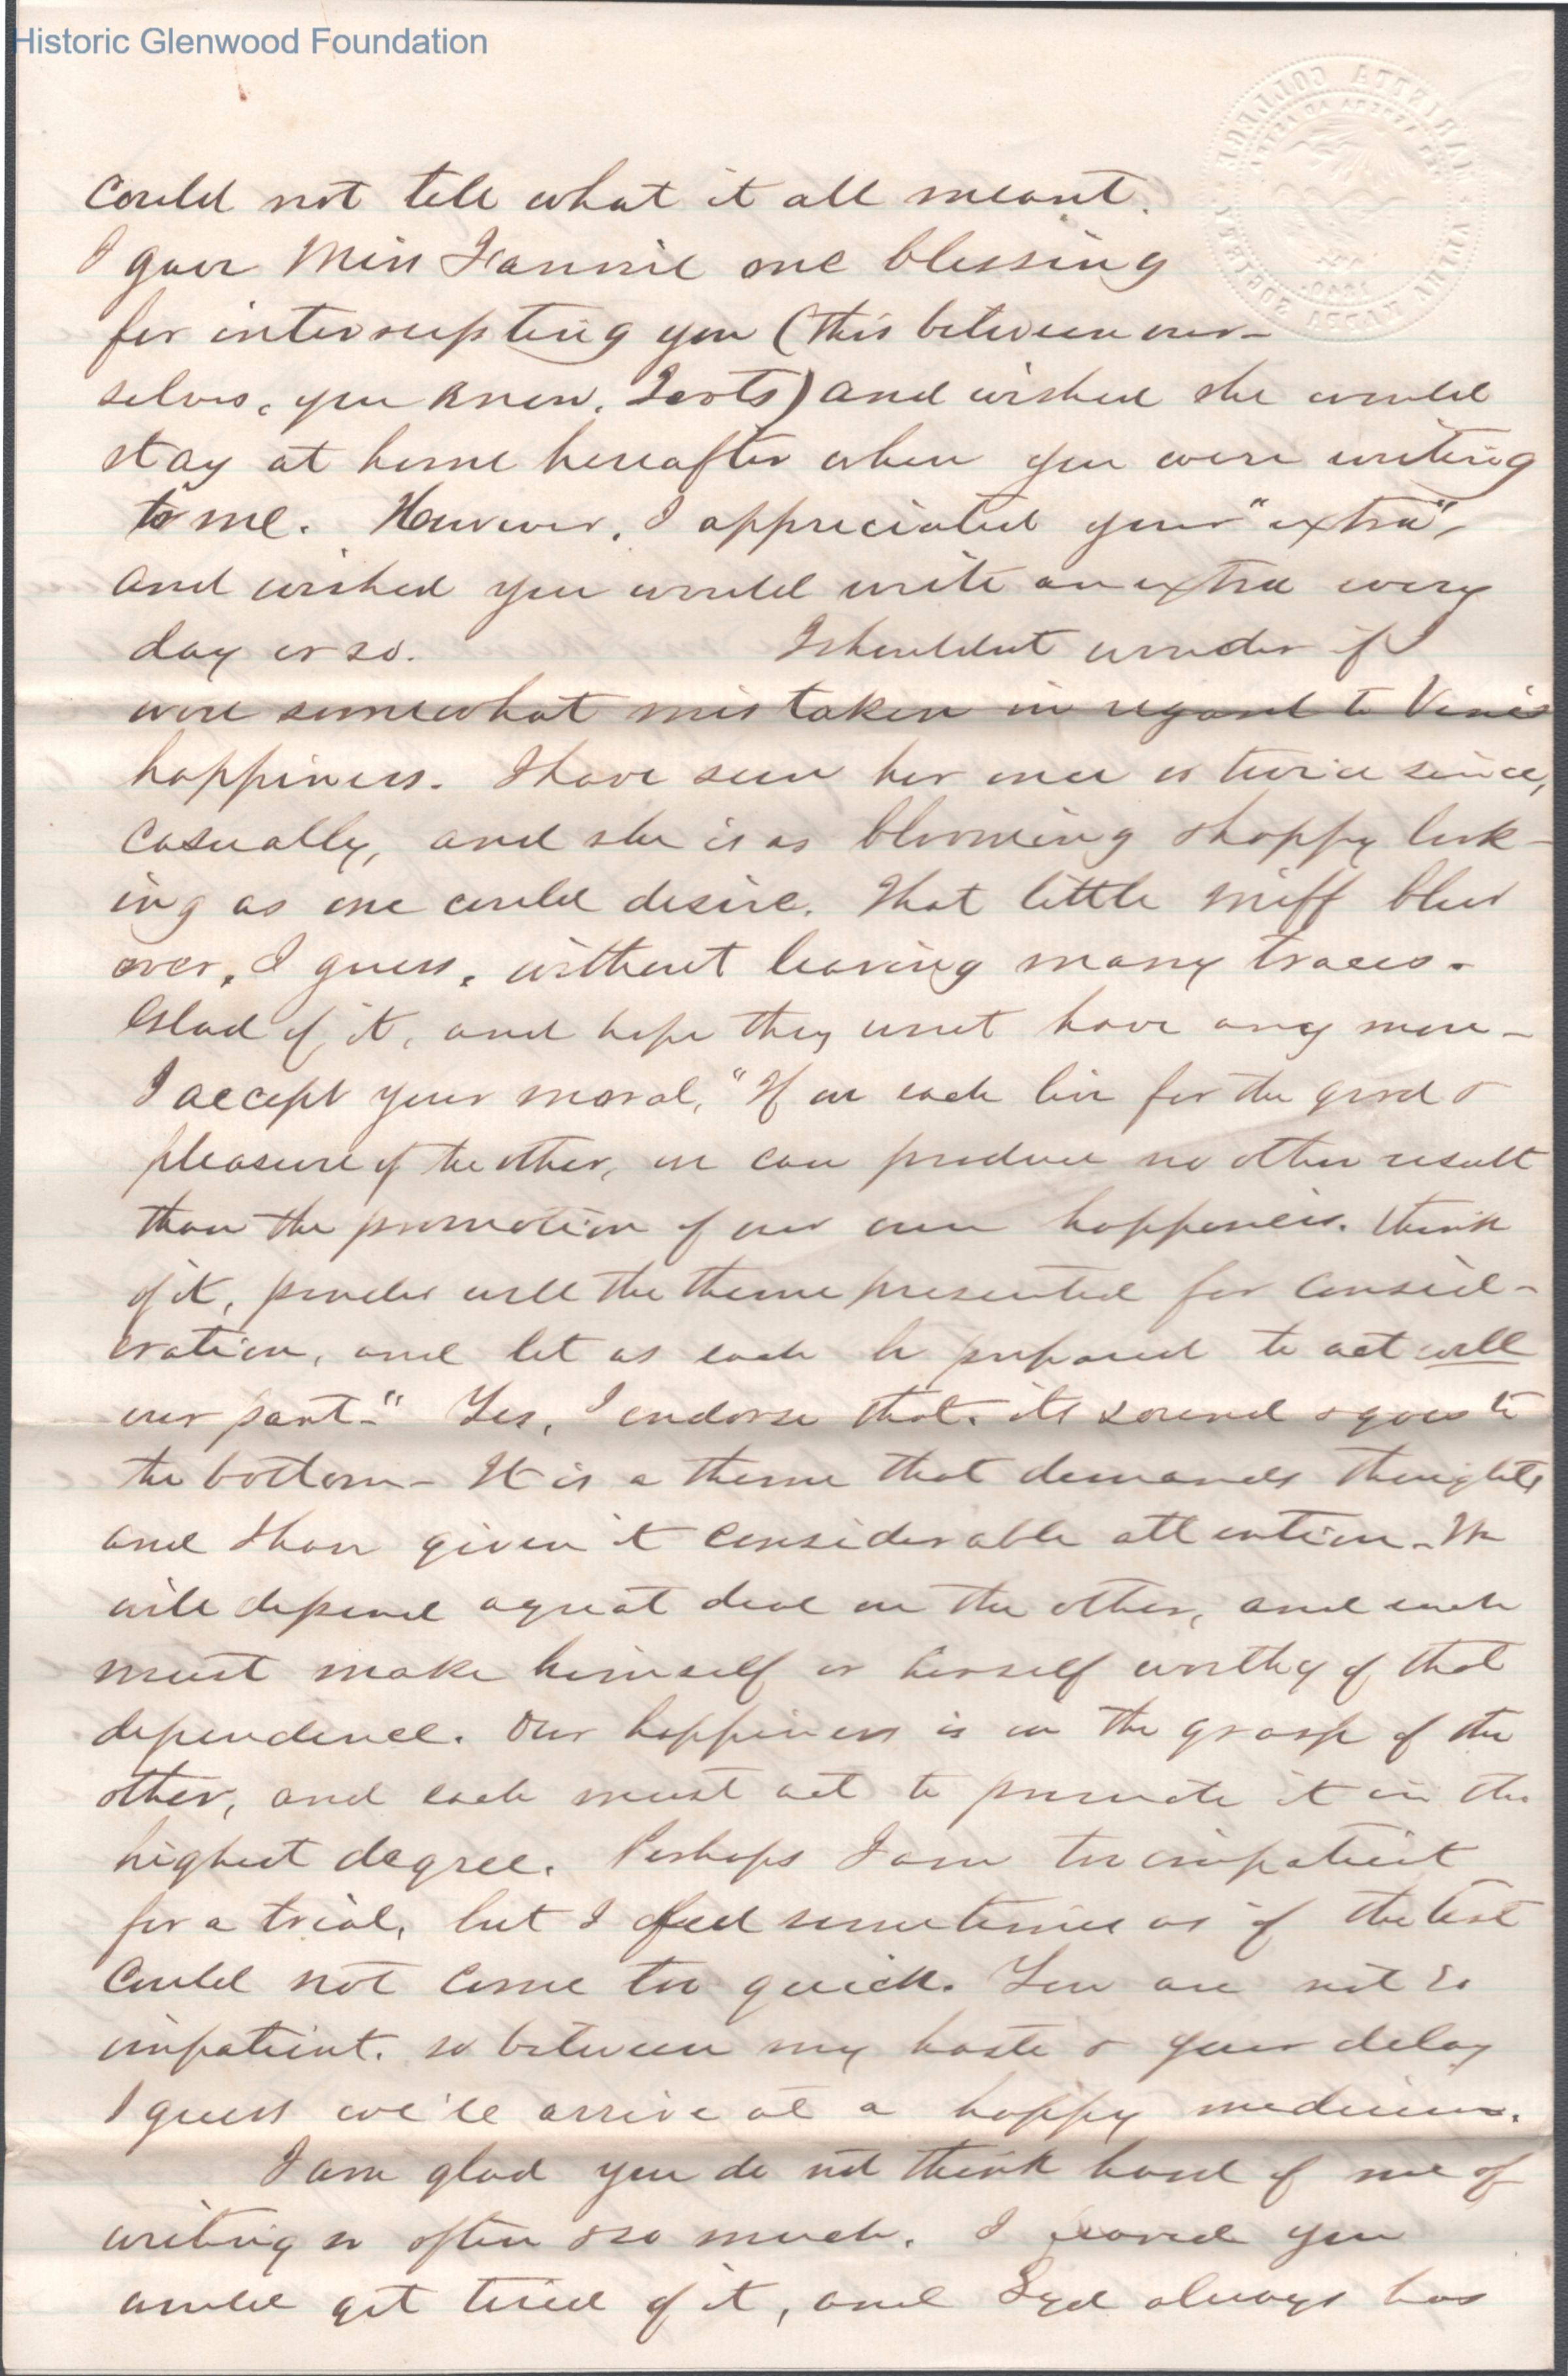 Historic Glenwood Foundation
MARIETTA COLLEGE
ALPHA KAPPA SOCIETY
could not tell what it all meant.
I gave Miss Fannie one blessing
for interrupting you (this between our-
selves, you know, Lots) and wished she would
stay at home hereafter when you were writing
to me. However, I appreciated your "extra",
and wished you would write an extra every
day or so. I shouldnt wonder if I
were somewhat mistaken in regard to Venie's
happiness. I have seen her once or twice since,
casually, and she is as blooming & happy look-
ing as one could desire. That little miff blew
over, I guess, without leaving many traces.
Glad of it, and hope they wont have any more -
I accept your moral, "If we each live for the good &
pleasure of the other, we can produce no other result
than the promotion of our own happiness. Think
of it, ponder well the theme presented for consid-
eration, and let us each be prepared to act well
our part." Yes, I endorse that. its sound & goes to
the bottom - It is a theme that demands thought
and I have given it considerable attention. We
will depend a great deal on the other, and each
must make himself or herself worthy of that
dependence. Our happiness is in the grasp of the
other, and each must act to promote it in the
highest degree. Perhaps I am too impatient
for a trial, but I feel sometimes as if the test
could not come too quick. You are not so
impatient. so between my haste & your delay
I guess we'll arrive at a happy medium.
I am glad you do not think hard of me of
writing so often & so much. I feared you
would get tired of it, and Syd always has